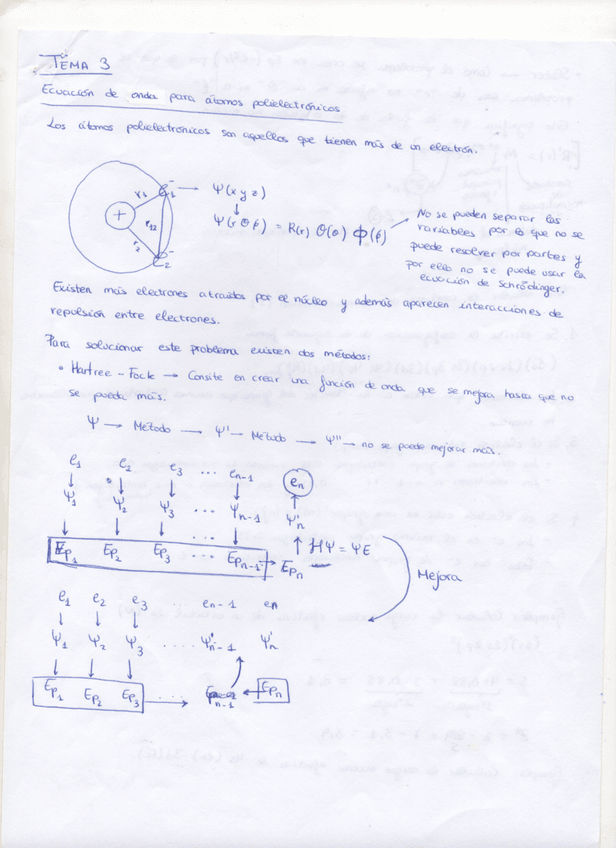 TEMA 3
Ecuación de onda para átomos polielectrónicos
Los átomos polielectrónicos son aquellos que tienen más de un electrón.
r1 e1- → Ψ(x y z)
+ r12 ↓
r2 Ψ(r θ ϕ) = R(r) Θ(θ) Φ(ϕ)
e2-
No se pueden separar las
variables por lo que no se
puede resolver por partes y
por ello no se puede usar la
ecuación de Schrödinger.
Existen más electrones atraidos por el núcleo y además aparecen interacciones de
repulsión entre electrones.
Para solucionar este problema existen dos métodos:
• Hartree - Fock → Consite en crear una función de onda que se mejora hasta que no
se pueda más.
Ψ → Método → Ψ' → Método → Ψ'' → no se puede mejorar más.
e1 e2 e3 ... en-1 en
↓ ↓ ↓ ↓ ↑
Ψ1 Ψ2 Ψ3 ... Ψn-1 Ψ'n
↓ ↓ ↓ ... ↓ ↑ HΨ = ΨE
Ep1 Ep2 Ep3 ... Epn-1 → Epn
Mejora
e1 e2 e3 ... en-1 en
↓ ↓ ↓
Ψ1 Ψ2 Ψ3 ... Ψ'n-1 Ψ'n
↓ ↓ ↓
Ep1 Ep2 Ep3 ... → Epn-1 ← Epn